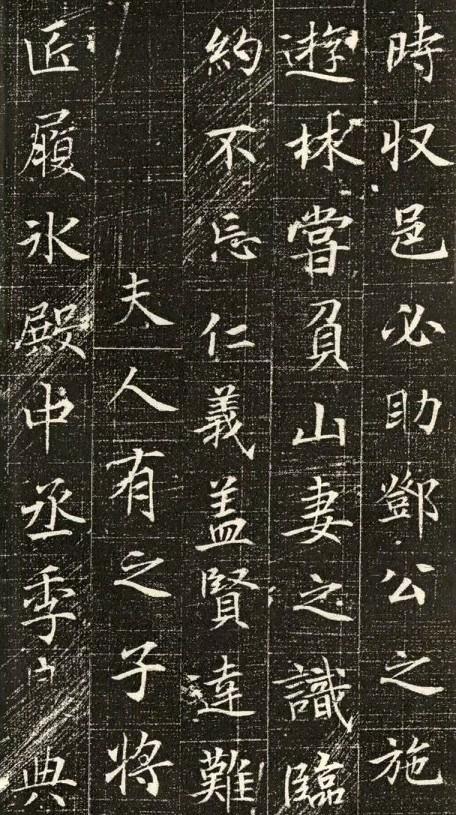 時収邑必助鄧公之施
遊林嘗負山妻之識臨
約不忘仁義盖賢達難
夫人有之子將
匠履氷殿中丞季典